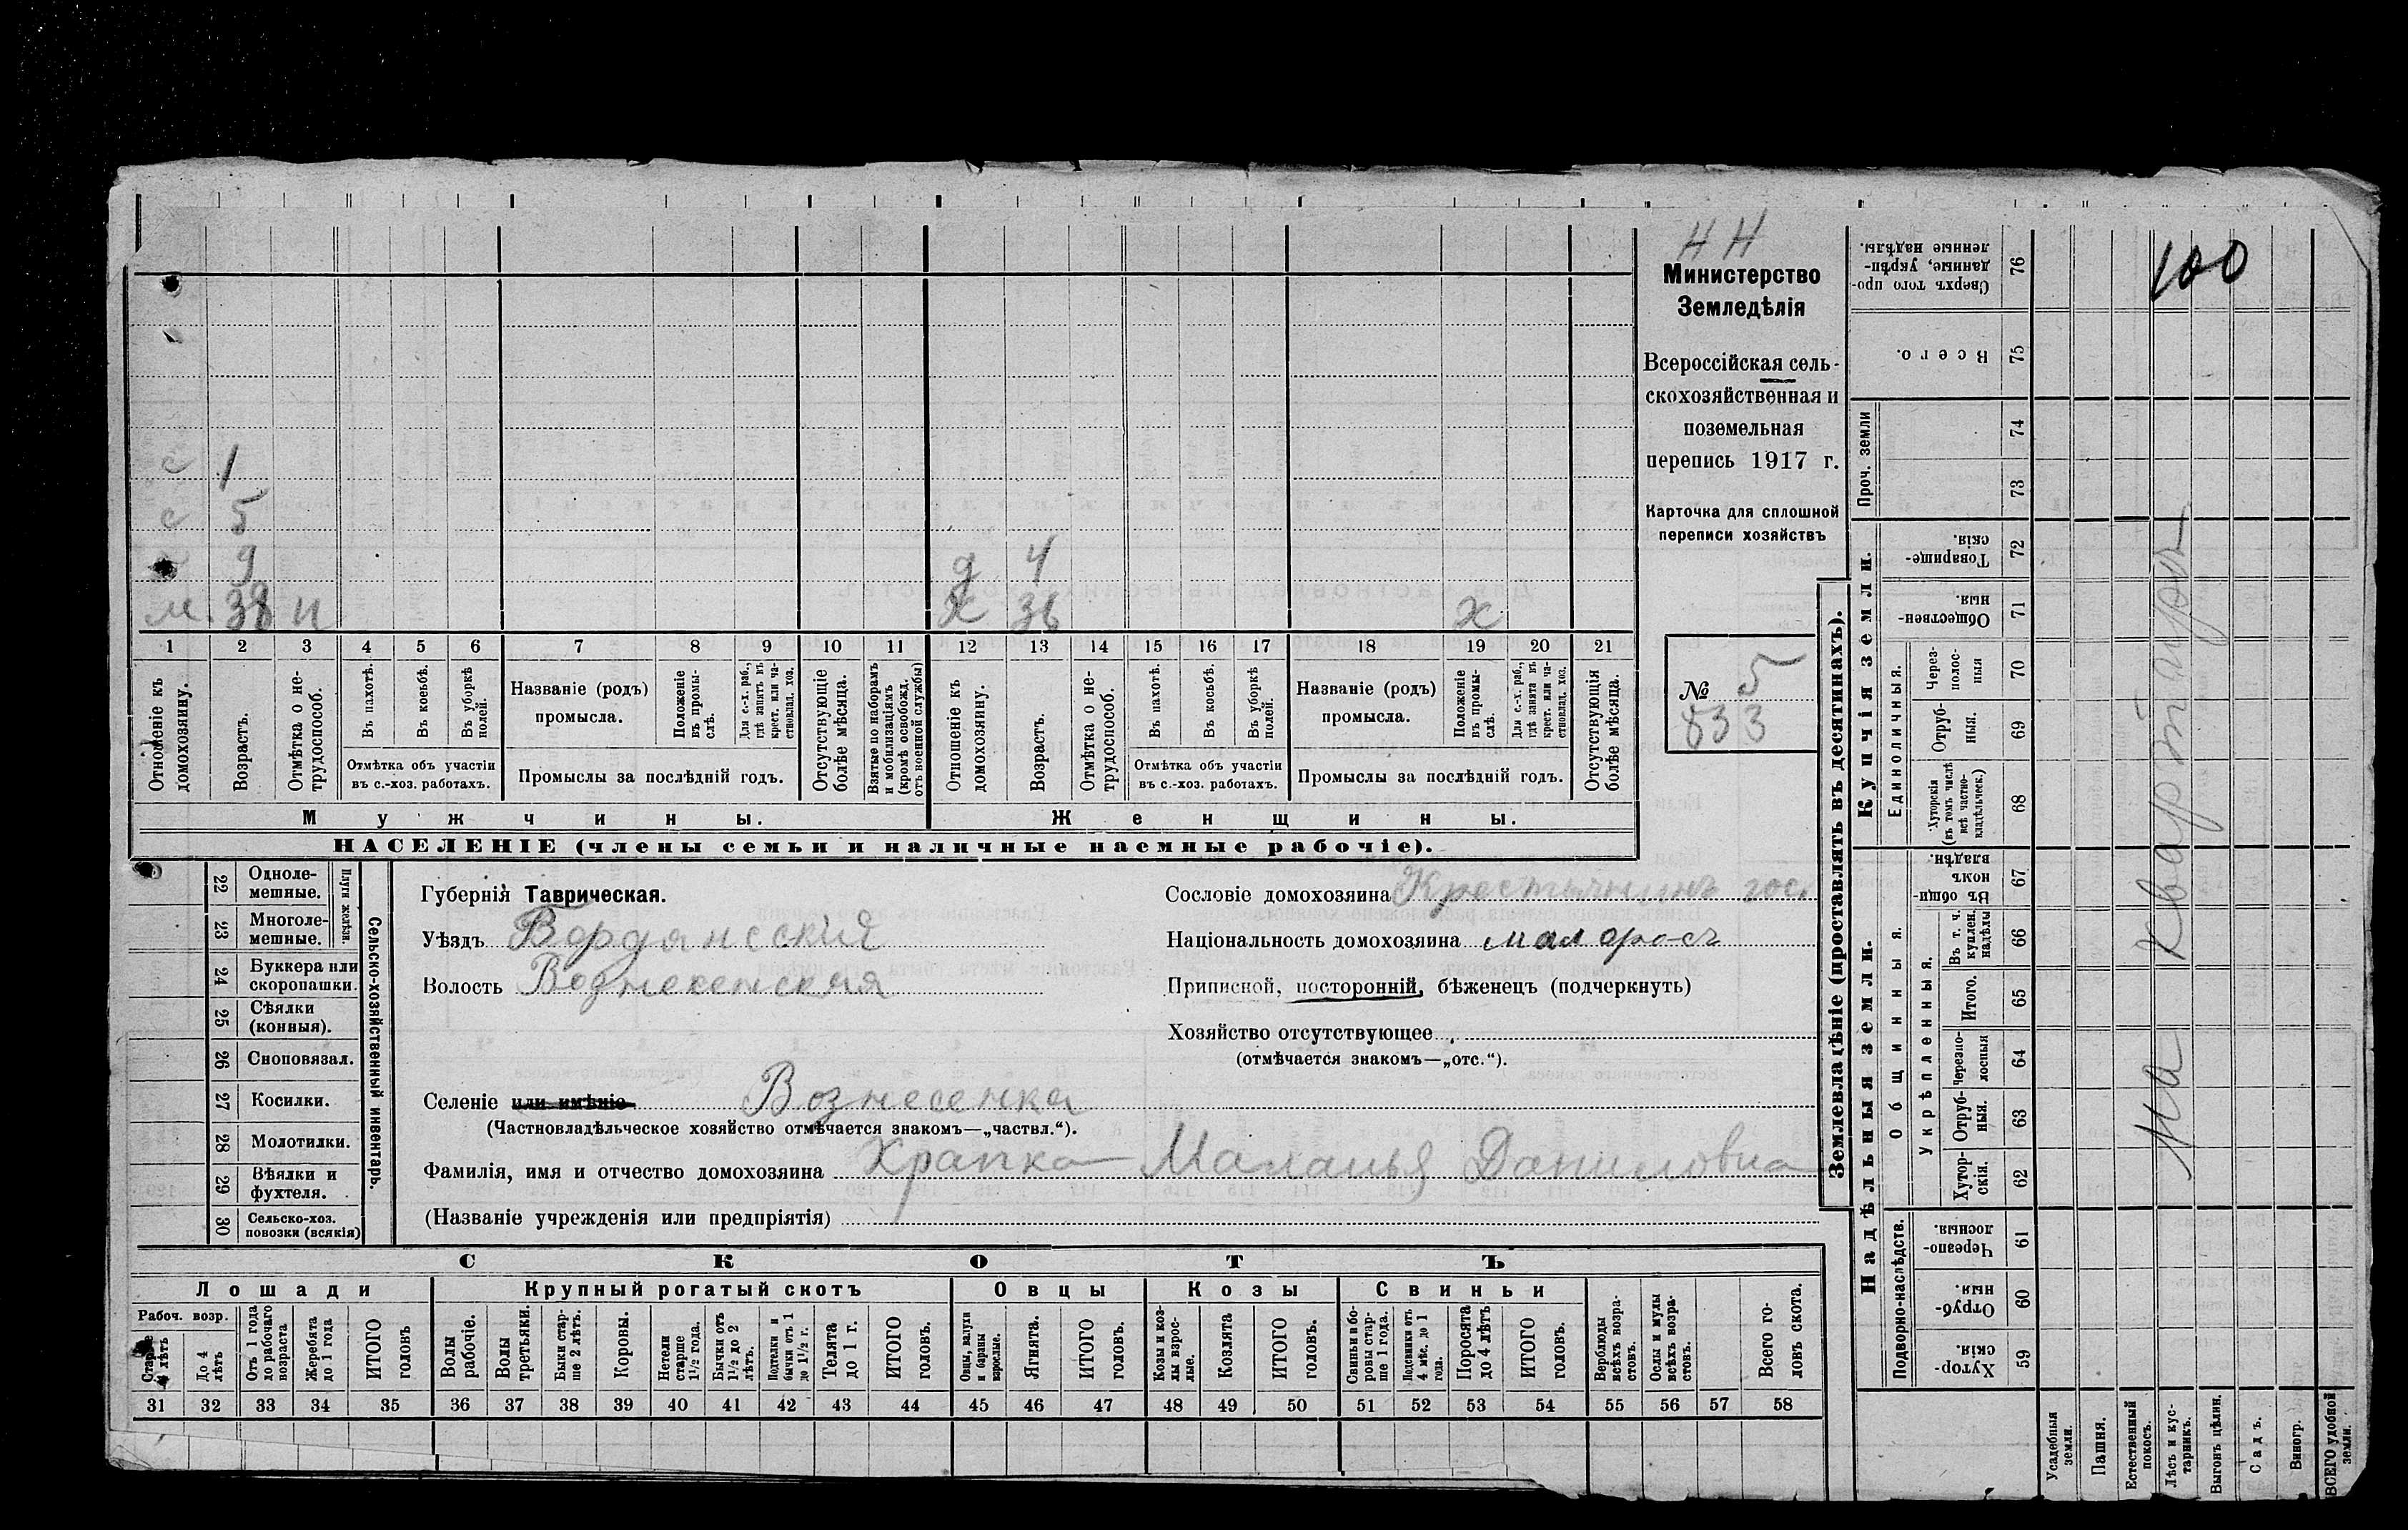 Н Н
Министерство
Земледѣлія
Всероссійская сель-
скохозяйственная и
поземельная
перепись 1917 г.
Карточка для сплошной
переписи хозяйствъ
№ 5
833
с 1
с 5
9
м. 38 н
д 4
х 36 х
1 2 3 4 5 6 7 8 9 10 11 12 13 14 15 16 17 18 19 20 21
Отношеніе къ домохозяину.
Возрастъ.
Отмѣтка о не-трудоспособ.
Въ пахотѣ.
Въ косьбѣ.
Въ уборкѣ полей.
Отмѣтка объ участіи
въ с.-хоз. работахъ.
Названіе (родъ)
промысла.
Положеніе въ промы-слѣ.
Для с.-х. раб., гдѣ занятъ въ крест. или ча-стновлад. хоз.
Промыслы за послѣдній годъ.
Отсутствующіе болѣе мѣсяца.
Взятые по наборамъ и мобилизаціямъ (кромѣ освобожд. отъ военной службы)
Отношеніе къ домохозяину.
Возрастъ.
Отмѣтка о не-трудоспособ.
Въ пахотѣ.
Въ косьбѣ.
Въ уборкѣ полей.
Отмѣтка объ участіи
въ с.-хоз. работахъ.
Названіе (родъ)
промысла.
Положеніе въ промы-слѣ.
Для с.-х. раб., гдѣ занята въ крест. или ча-стновлад. хоз.
Промыслы за послѣдній годъ.
Отсутствующія болѣе мѣсяца.
Мужчины.
Женщины.
НАСЕЛЕНІЕ (члены семьи и наличные наемные рабочіе).
22 Одноле-мешные.
23 Многоле-мешные.
Плуги желѣзн.
24 Буккера или скоропашки.
25 Сѣялки (конныя).
26 Сноповязал.
27 Косилки.
28 Молотилки.
29 Вѣялки и фухтеля.
30 Сельско-хоз. повозки (всякія)
Сельско-хозяйственный инвентарь.
Губернія Таврическая.
Уѣздъ Бердянскій
Волость Вознесенская
Селеніе или имѣніе Вознесенка
(Частновладѣльческое хозяйство отмѣчается знакомъ—„частвл.“).
Фамилія, имя и отчество домохозяина Храпко Маланья Даниловна
(Названіе учрежденія или предпріятія)
Сословіе домохозяина Крестьянинъ гос
Національность домохозяина малоросъ
Приписной, посторонній, бѣженецъ (подчеркнуть)
Хозяйство отсутствующее
(отмѣчается знакомъ—„отс.“).
СКОТЪ
Лошади
Крупный рогатый скотъ
Овцы
Козы
Свиньи
Рабоч. возр.
Старше 4 лѣтъ
До 4 лѣтъ
Отъ 1 года до рабочаго возраста
Жеребята до 1 года
ИТОГО головъ
Волы рабочіе.
Волы третьяки.
Быки стар-ше 2 лѣтъ.
Коровы.
Нетели старше 1½ года.
Бычки отъ 1½ до 2 лѣтъ.
Подтелки и бычки отъ 1 до 1½ г.
Телята до 1 г.
ИТОГО головъ.
Овцы, валухи и бараны взрослые.
Ягнята.
ИТОГО головъ.
Козы и коз-лы взрос-лые.
Козлята
ИТОГО головъ.
Свиньи и бо-ровы стар-ше 1 года.
Подсвинки отъ 4 мѣс. до 1 года.
Поросята до 4 лѣтъ
ИТОГО головъ.
Верблюды всѣхъ возра-стовъ.
Ослы и мулы всѣхъ возра-стовъ.
Всего го-ловъ скота.
31 32 33 34 35 36 37 38 39 40 41 42 43 44 45 46 47 48 49 50 51 52 53 54 55 56 57 58
Землевладѣніе (проставлять въ десятинахъ).
Купчія земли.
Надѣльныя земли.
Сверхъ того про-данные, укрѣп-ленные надѣлы. 76
Всего. 75
Проч. земли
74
73
Товарище-скія. 72
Обществен-ныя. 71
Единоличныя.
Через-полос-ныя 70
Отруб-ныя. 69
Хуторскія (въ томъ числѣ всѣ частно-владѣльческ.) 68
Общинныя.
Въ общин-номъ владѣн. 67
Укрѣпленныя.
Въ т. ч. куплен. надѣлы 66
Итого. 65
Черезпо-лосныя 64
Отруб-ныя. 63
Хутор-скія. 62
Подворно-наслѣдств.
Черезпо-лосныя. 61
Отруб-ныя. 60
Хутор-скія. 59
Усадебныя земли.
Пашня.
Естественный покосъ.
Лѣсъ и кус-тарникъ.
Выгонъ цѣлин.
Садъ.
Виногр.
ВСЕГО удобной земли.
100
На квартирѣ